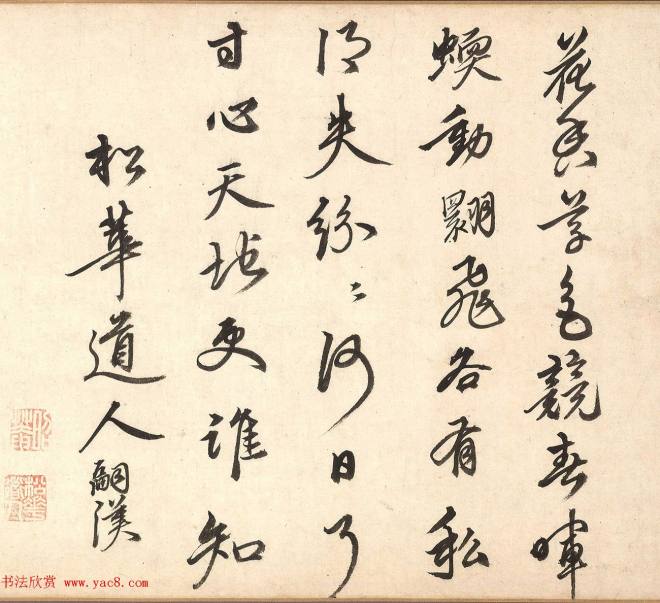 花香草色競春暉
蝡動翾飛各有私
得失紛〻何日了
寸心天地更誰知
松華道人嗣漢
书法欣赏 www.yac8.com